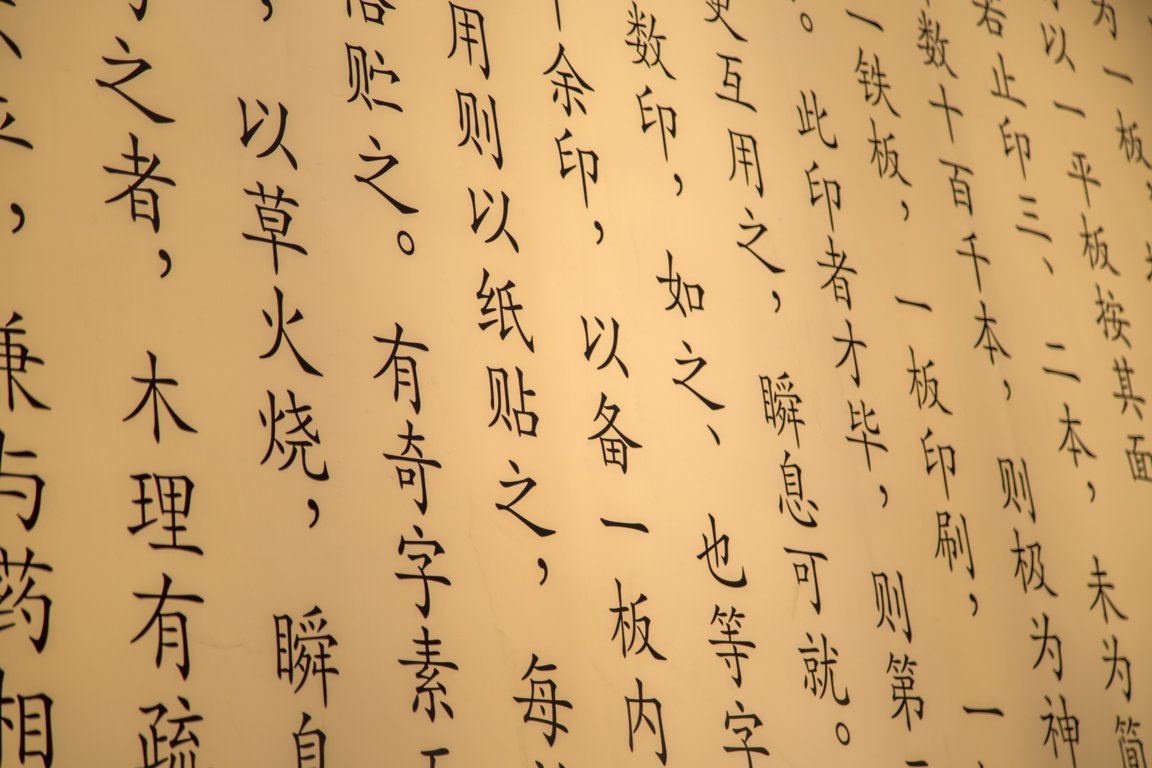 为一板
以一平板按其面
若止印三、二本，未为简
数十百千本，则极为神
一铁板，一板印刷，一
。此印者才毕，则第
更互用之，瞬息可就。
数印，如之、也等字
余印，以备一板内
用则以纸贴之，每
贮之。有奇字素
，以草火烧，瞬息
之者，木理有疏
，兼与药相